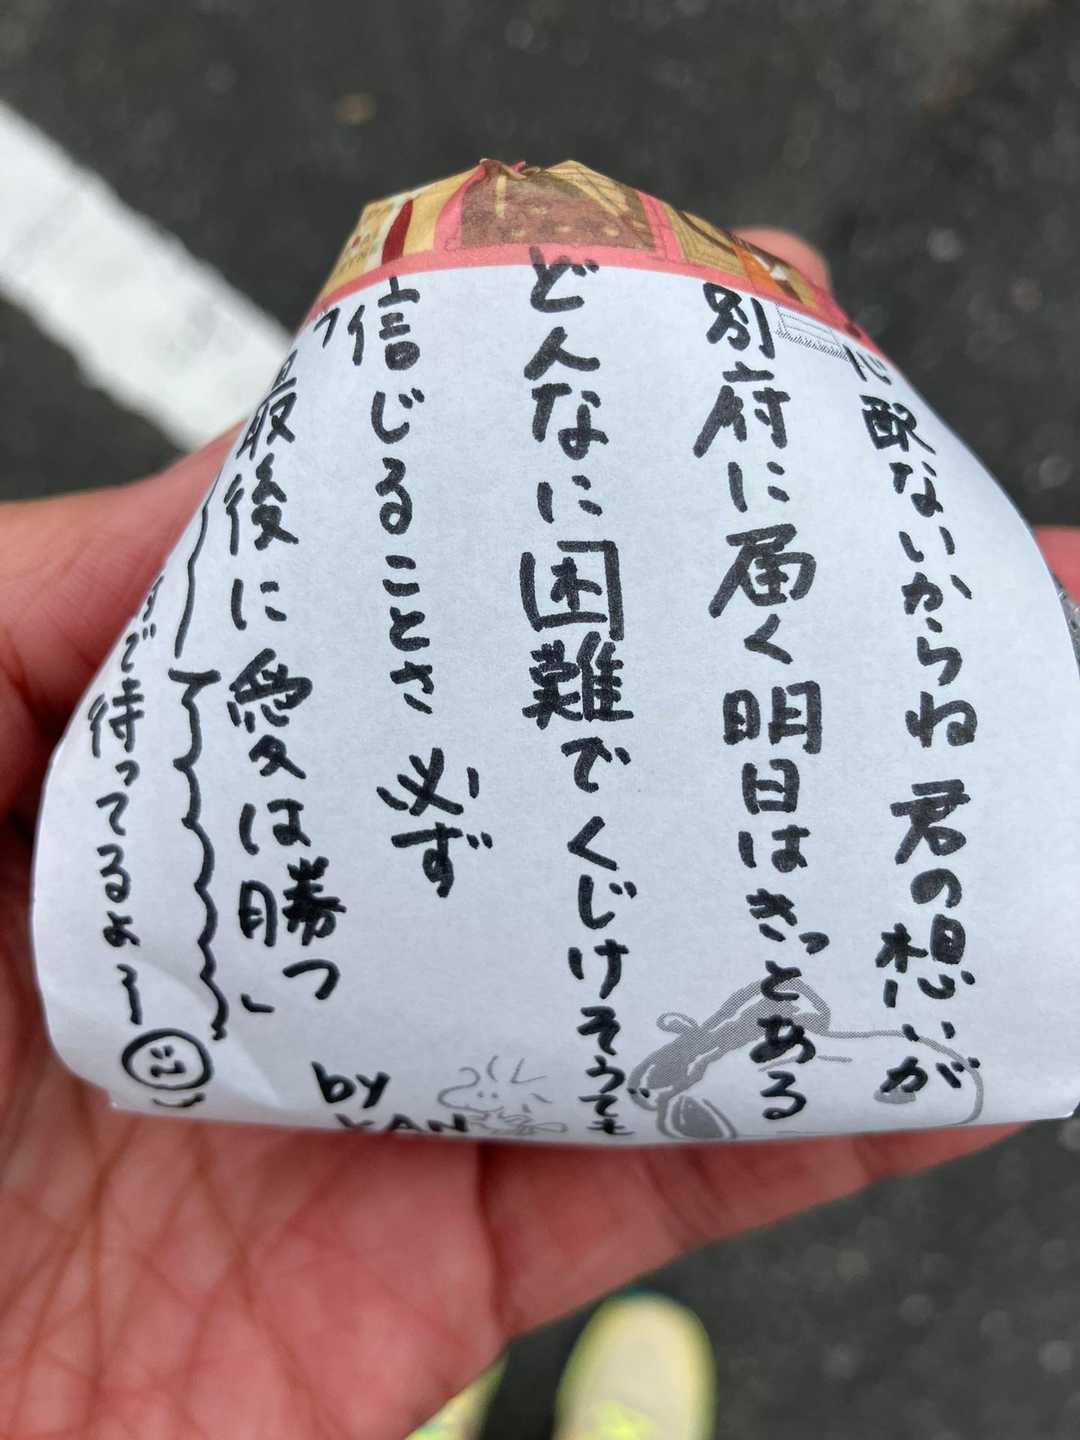 心配ないからね 君の想いが
別府に届く 明日はきっとある
どんなに困難でくじけそうでも
信じることさ 必ず
最後に愛は勝つ
by KAN
で待ってるよー